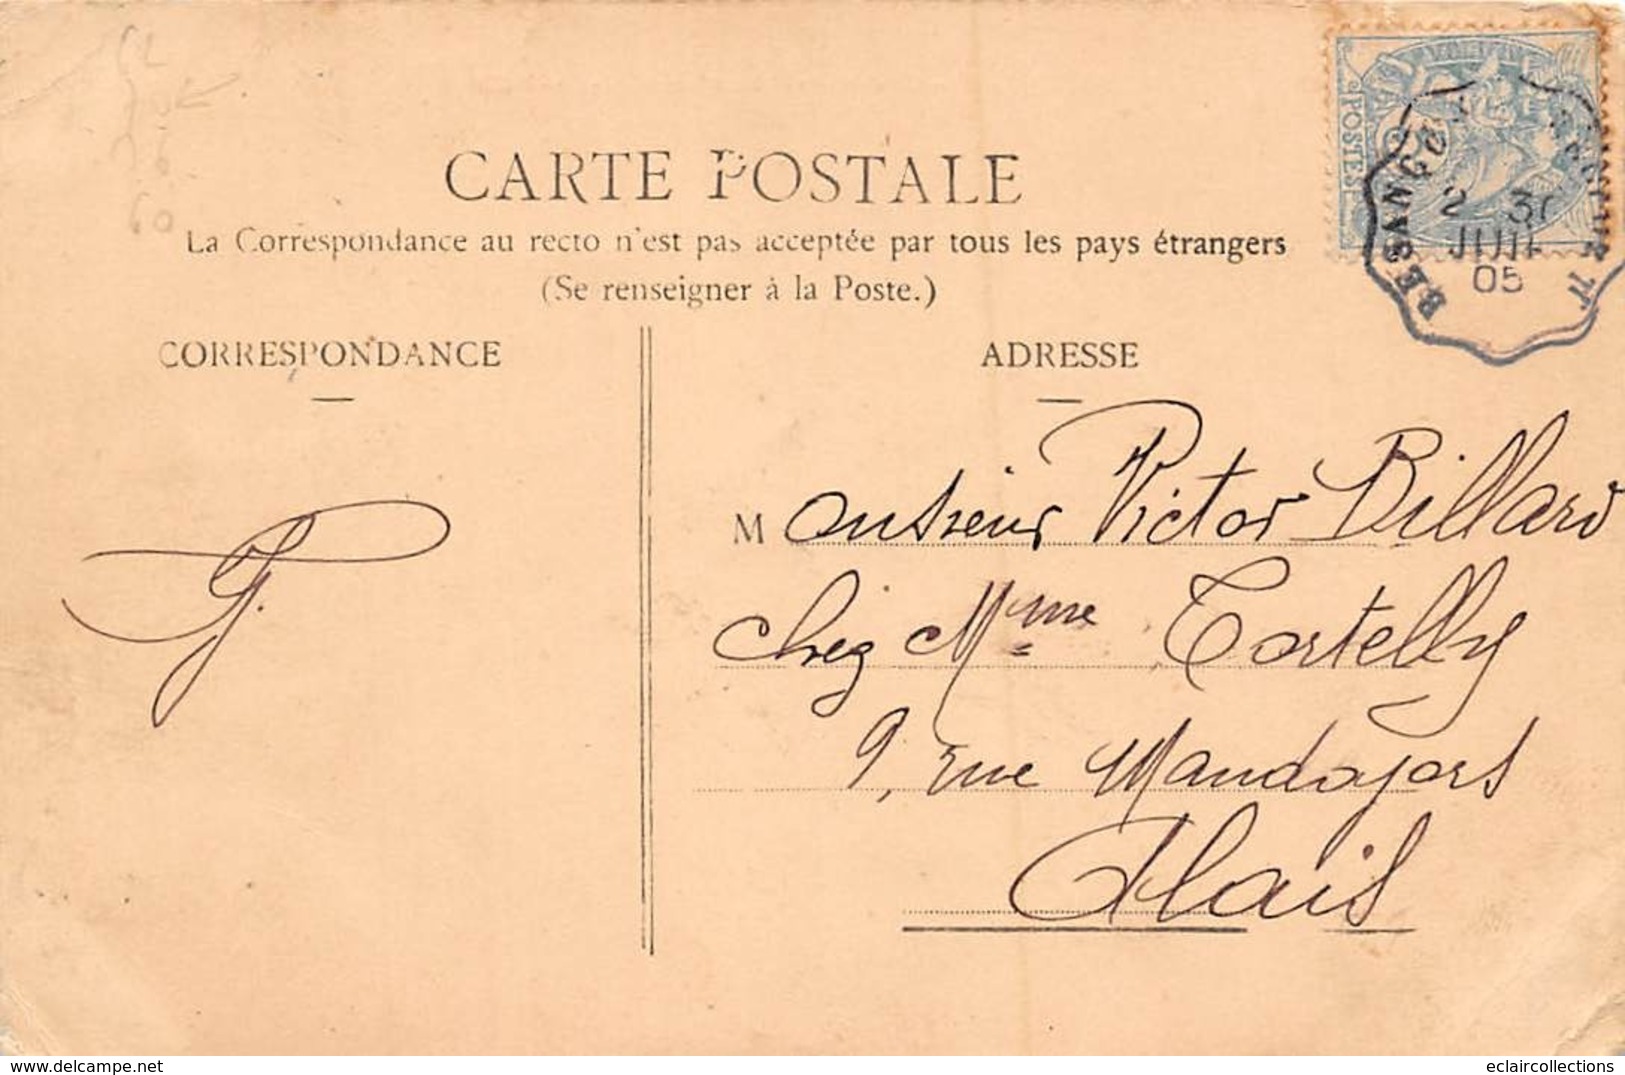 CARTE POSTALE
La Correspondance au recto n'est pas acceptée par tous les pays étrangers
(Se renseigner à la Poste.)
CORRESPONDANCE
ADRESSE
POSTES
BESANÇON
2 30
JUIL
05
G.
Monsieur Victor Billard
chez Mme Tortelly
9, rue Mandajors
Alais
60
https://www.delcampe.net
eclaircollections